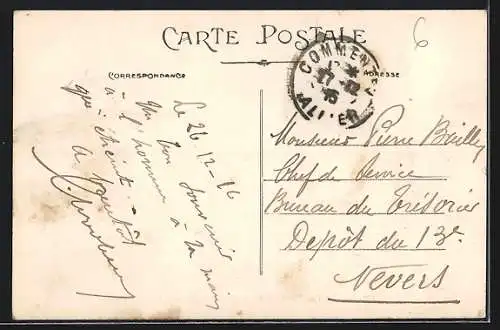 CARTE POSTALE
CORRESPONDANCE
ADRESSE
6
COMMENTRY
ALLIER
Le 26-12-16
Un bon souvenir
à l'homme à la main
que étreint
A bientôt
Monsieur Pierre Bailly
Chef de Service
Bureau du Trésorier
Depôt du 13e
Nevers